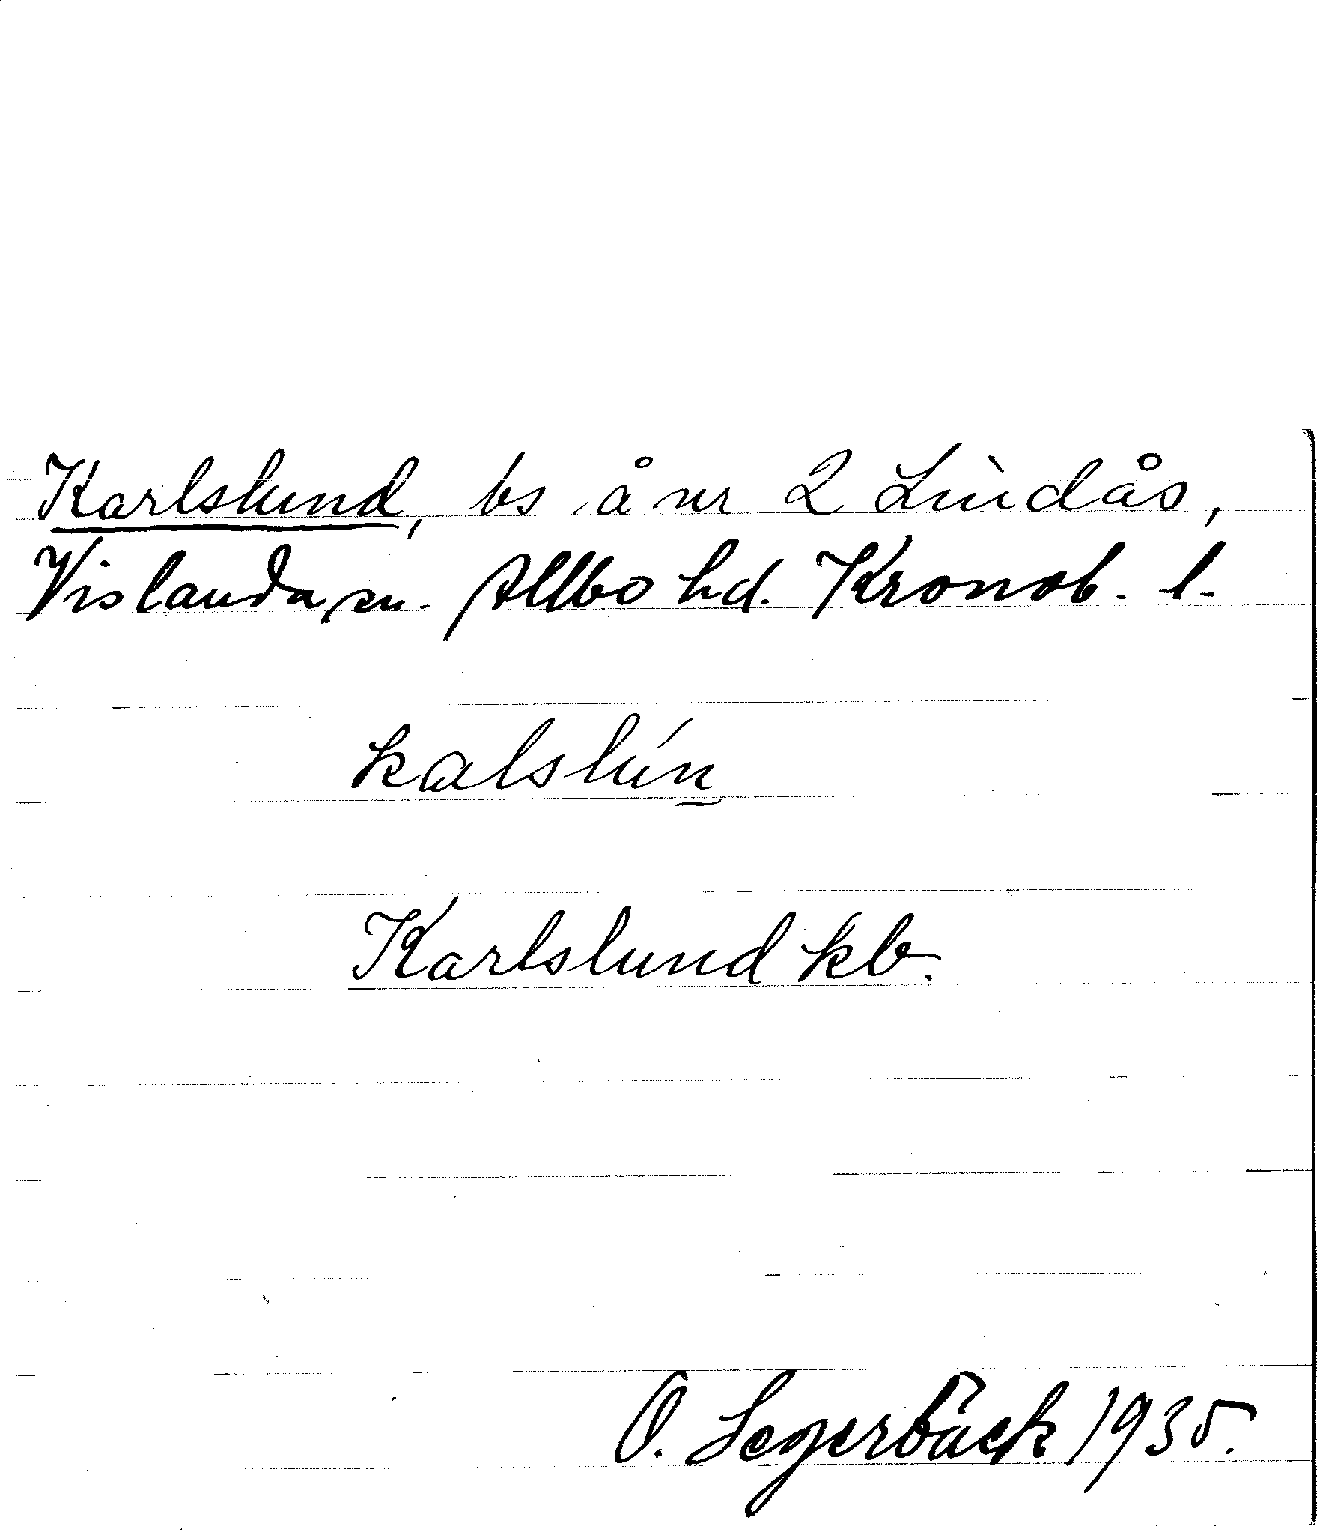 Karlslund, bs å nr 2 Lindås,
Vislanda sn. Allbo hd. Kronob. l.
kalslún̲
Karlslund kb.
O. Segerbäck 1935.